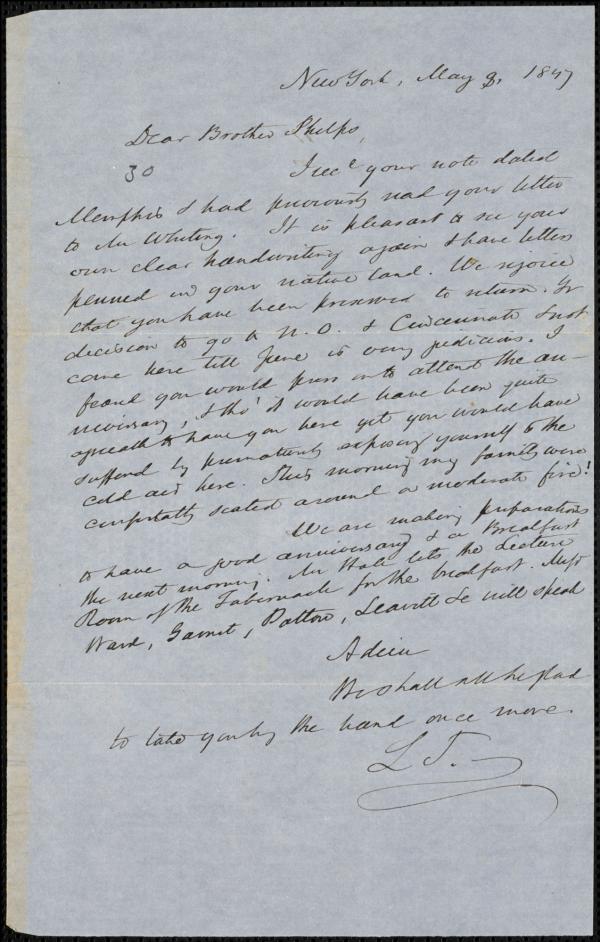 New York, May 3, 1847
Dear Brother Phelps,
30
I recd your note dated
Memphis & had previously read your letter
to Mr Whiting. It is pleasant to see your
own clear handwriting again & have letters
penned in your native land. We rejoice
that you have been preserved to return. Yr
decision to go to N. O. & Cincinnati & not
come here till June is very judicious. I
feared you would press on to attend the an-
niversary, & tho' it would have been quite
agreeable to have you here yet you would have
suffered by prematurely exposing yourself to the
cold air here. This morning my family were
comfortably seated around a moderate fire!
We are making preparations
to have a good anniversary & a Breakfast
the next morning. Mr Hale lets the Lecture
Room of the Tabernacle for the breakfast. Messrs
Ward, Garnet, Patton, Leavitt &c will speak
Adieu
We shall all be glad
to take you by the hand once more.
L T.